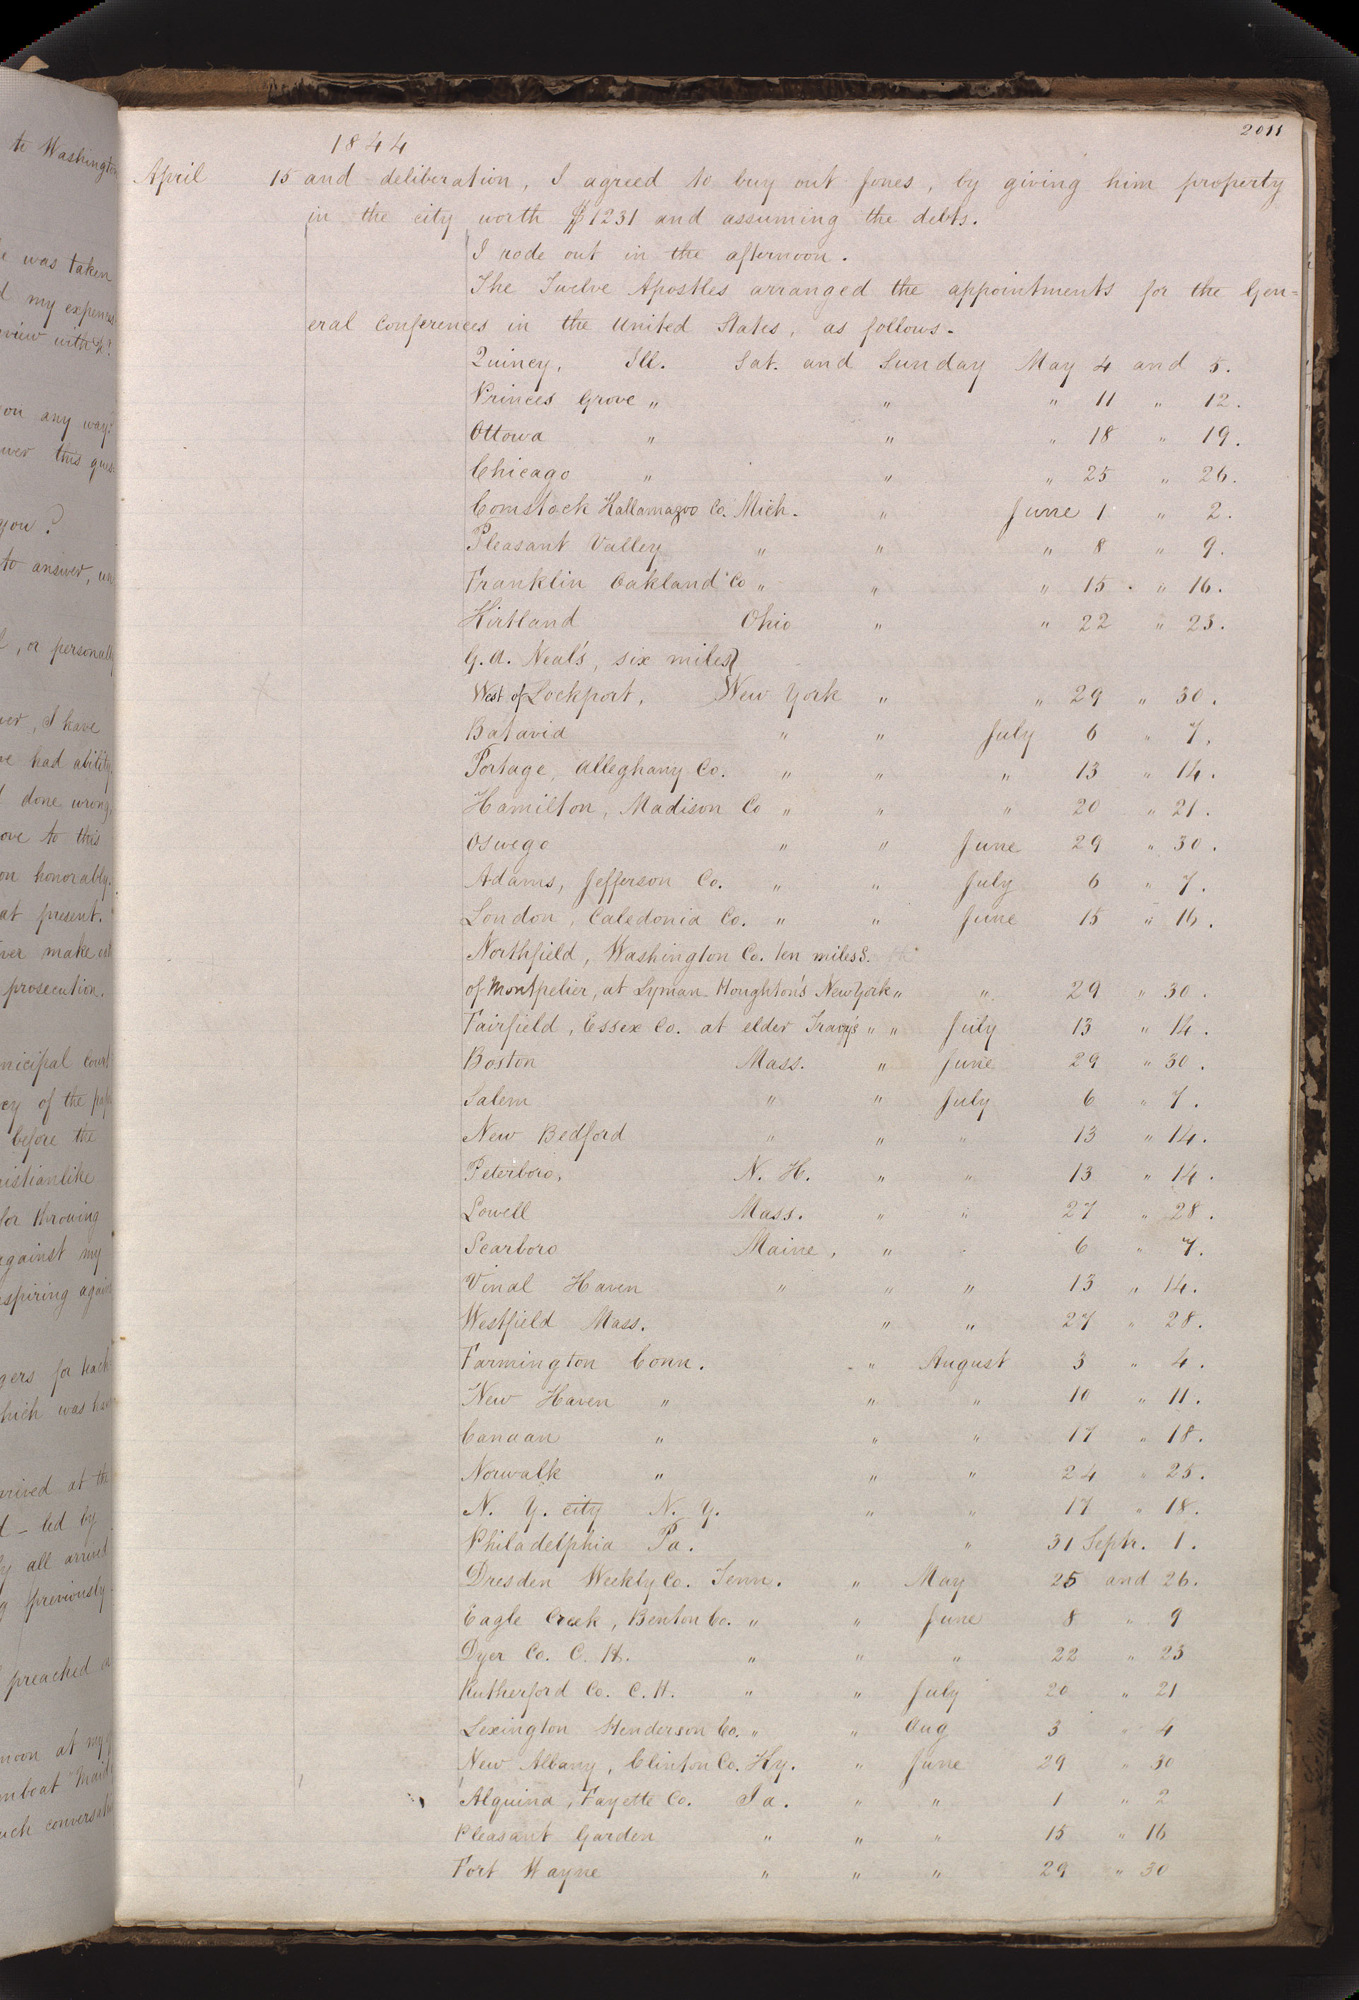 to Washington
e was taken
d my expenses
view with
on any way?
wer this ques
you?
to answer,
, or personally
er, I have
ve had ability
done wrong,
ove to this
on honorably.
at present."
ver make
prosecution.
nicipal court
cy of the
before the
istianlike
for throwing
against my
spiring again
gers for
hich was
rrived at the
d – led by
y all arrived
g previously.
preached
noon at my
mboat "Maid
uch conversation
2011
1844
April 15 and deliberation, I agreed to buy out Jones, by giving him property
in the city worth $1231 and assuming the debts.
I rode out in the afternoon.
The Twelve Apostles arranged the appointments for the Gen-
eral Conferences in the United States, as follows-
Quincy, Ill. Sat. and Sunday May 4 and 5.
Princes Grove " " " 11 " 12.
Ottowa " " " 18 " 19.
Chicago " " " 25 " 26.
Comstock Kallamazoo Co. Mich. " June 1 " 2.
Pleasant Valley " " " 8 " 9.
Franklin Oakland Co " " " 15 " 16.
Kirtland Ohio " " 22 " 23.
G. A. Neal's, six miles
West of Lockport, New York " " 29 " 30.
Batavia " " July 6 " 7.
Portage, Alleghany Co. " " " 13 " 14.
Hamilton, Madison Co " " " 20 " 21.
Oswego " " June 29 " 30.
Adams, Jefferson Co. " " July 6 " 7.
London, Caledonia Co. " " June 15 " 16.
Northfield, Washington Co. ten miles S.
of Montpelier, at Lyman Houghton's New York " " 29 " 30.
Fairfield, Essex Co. at elder Tracy's " " July 13 " 14.
Boston Mass. " June 29 " 30.
Salem " " July 6 " 7.
New Bedford " " " 13 " 14.
Peterboro, N. H. " " 13 " 14.
Lowell Mass. " " 27 " 28.
Scarboro Maine, " " 6 " 7.
Vinal Haven " " " 13 " 14.
Westfield Mass. " " 27 " 28.
Farmington Conn. " August 3 " 4.
New Haven " " " 10 " 11.
Canaan " " " 17 " 18.
Norwalk " " " 24 " 25.
N. Y. city N. Y. " " 17 " 18.
Philadelphia Pa. " 31 Septr. 1.
Dresden Weekly Co. Tenn. " May 25 and 26.
Eagle Creek, Benton Co. " " June 8 " 9
Dyer Co. C. H. " " " 22 " 23
Rutherford Co. C. H. " " July 20 " 21
Lexington Henderson Co. " " Aug 3 " 4
New Albany, Clinton Co. Ky. " June 29 " 30
Alquina, Fayette Co. Ia. " " 1 " 2
Pleasant Garden " " " 15 " 16
Fort Wayne " " " 29 " 30